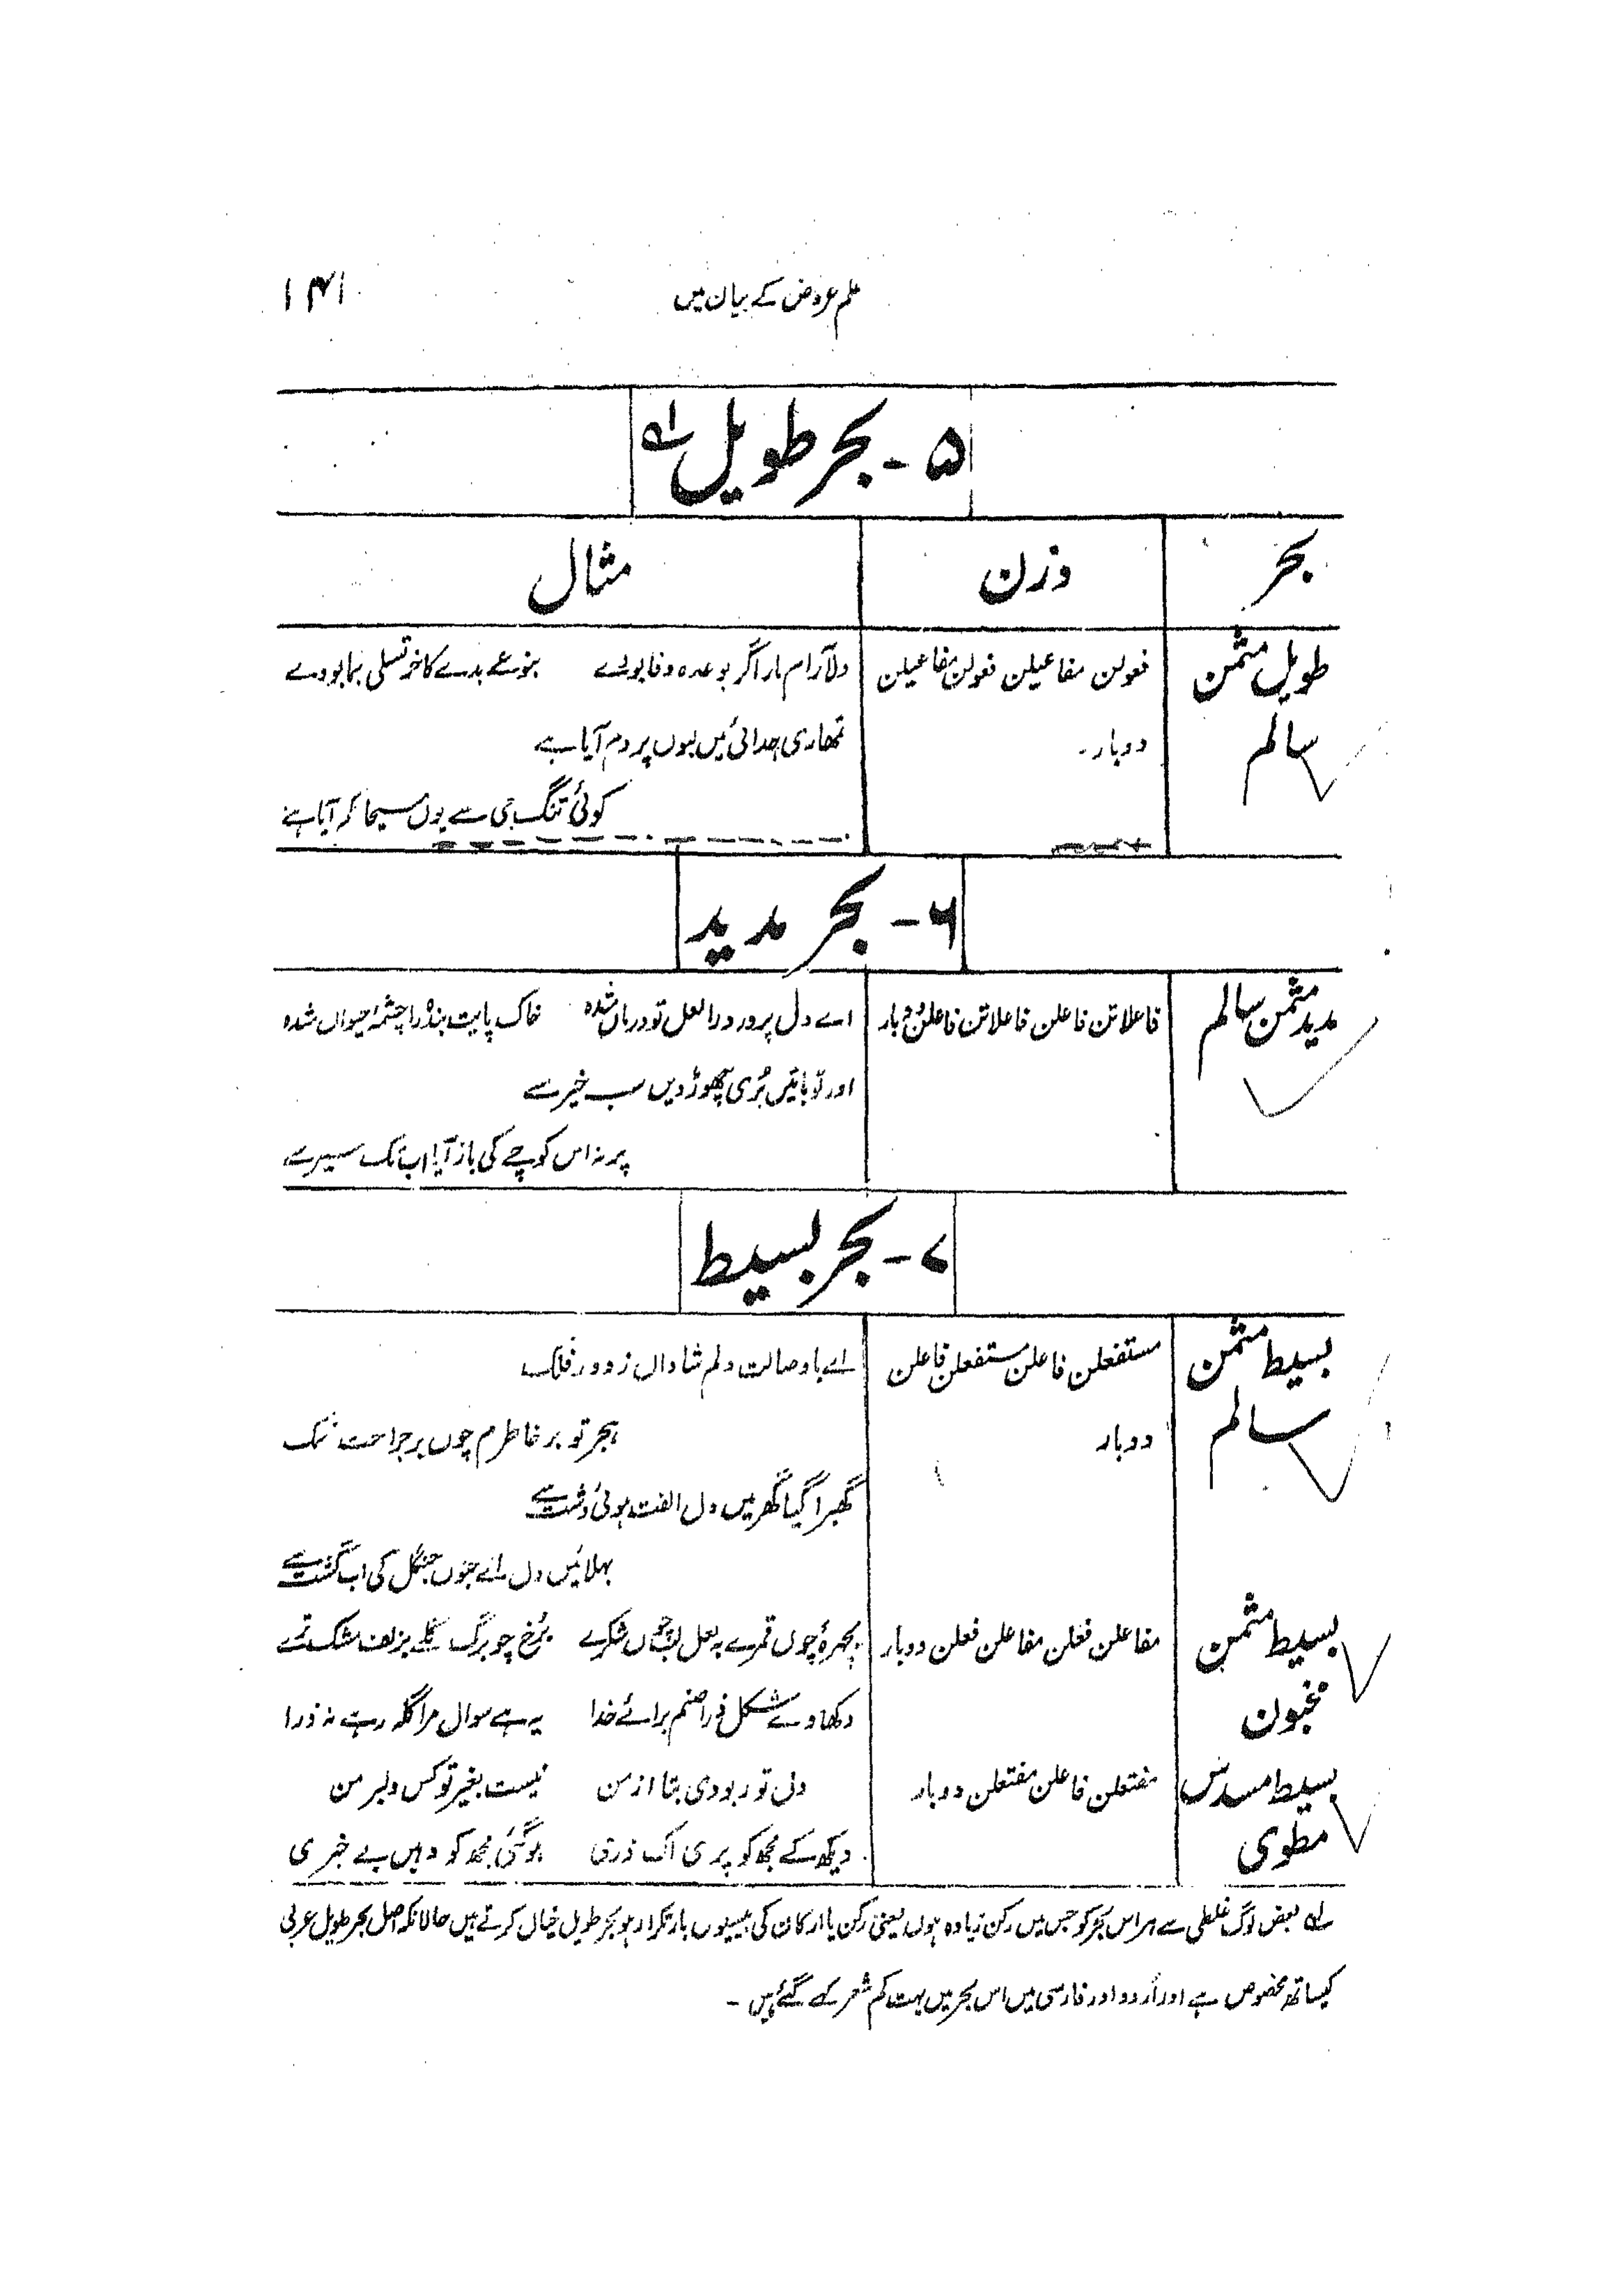 علم عروض کے بیان میں ۱۴۱
۵ - بحر طویل لہ
بحر وزن مثال
طویل مثمن فعولن مفاعیلن فعولن مفاعیلن دلآرام مارا گر بوعدہ وفا بودے بنوعے بدے کاخر تسلی بما بودے
سالم دوبار - تمھاری جدائی میں لبوں پر دم آیا ہے
کوئی تنگ جی سے یوں مسیحا کم آیا ہے
۶ - بحر مدید
مدید مثمن سالم فاعلاتن فاعلن فاعلاتن فاعلن دوبار اے دل پر درد را لعل تو درماں شدہ خاک پایت بندہ را چشمۂ حیواں شدہ
اور تو باتیں بُری چھوڑ دیں سب خیر سے
پر نہ اس کوچے کی باز آیا اب تک سیر سے
۷ - بحر بسیط
بسیط مثمن مستفعلن فاعلن مستفعلن فاعلن اے با وصالت دلم شاداں ز دور فلک
سالم دوبار ہجر تو بر خاطرم چوں بر جراحت نمک
گھبرا گیا گھر میں دل الفت ہوئی دشت سے
بہلائیں دل اے جنوں جنگل کی اب گشت سے
بسیط مثمن مفاعلن فعلن مفاعلن فعلن دوبار بچہرۂ چوں قمرے بہ لعل لب چوں شکرے برُخ چو برگ گلے بزلف مشک ترے
مخبون دکھا دے شکل ذرا صنم برائے خدا یہ ہے سوال مرا گلہ رہے نہ ذرا
بسیط مسدس مفتعلن فاعلن مفتعلن دوبار دل تو ربودی بتا از من نیست بغیر تو کس دلبر من
مطوی دیکھ کے مجھ کو پری اک ذری ہو گئی مجھ کو وہیں بے خبری
لہ بعض لوگ غلطی سے ہر اس بحر کو جس میں رکن زیادہ ہوں یعنی رکن یا ارکان کی بیسیوں بار تکرار ہو بحر طویل خیال کرتے ہیں حالانکہ اصل بحر طویل عربی
کیساتھ مخصوص ہے اور اُردو اور فارسی میں اس بحر میں بہت کم شعر کہے گئے ہیں -